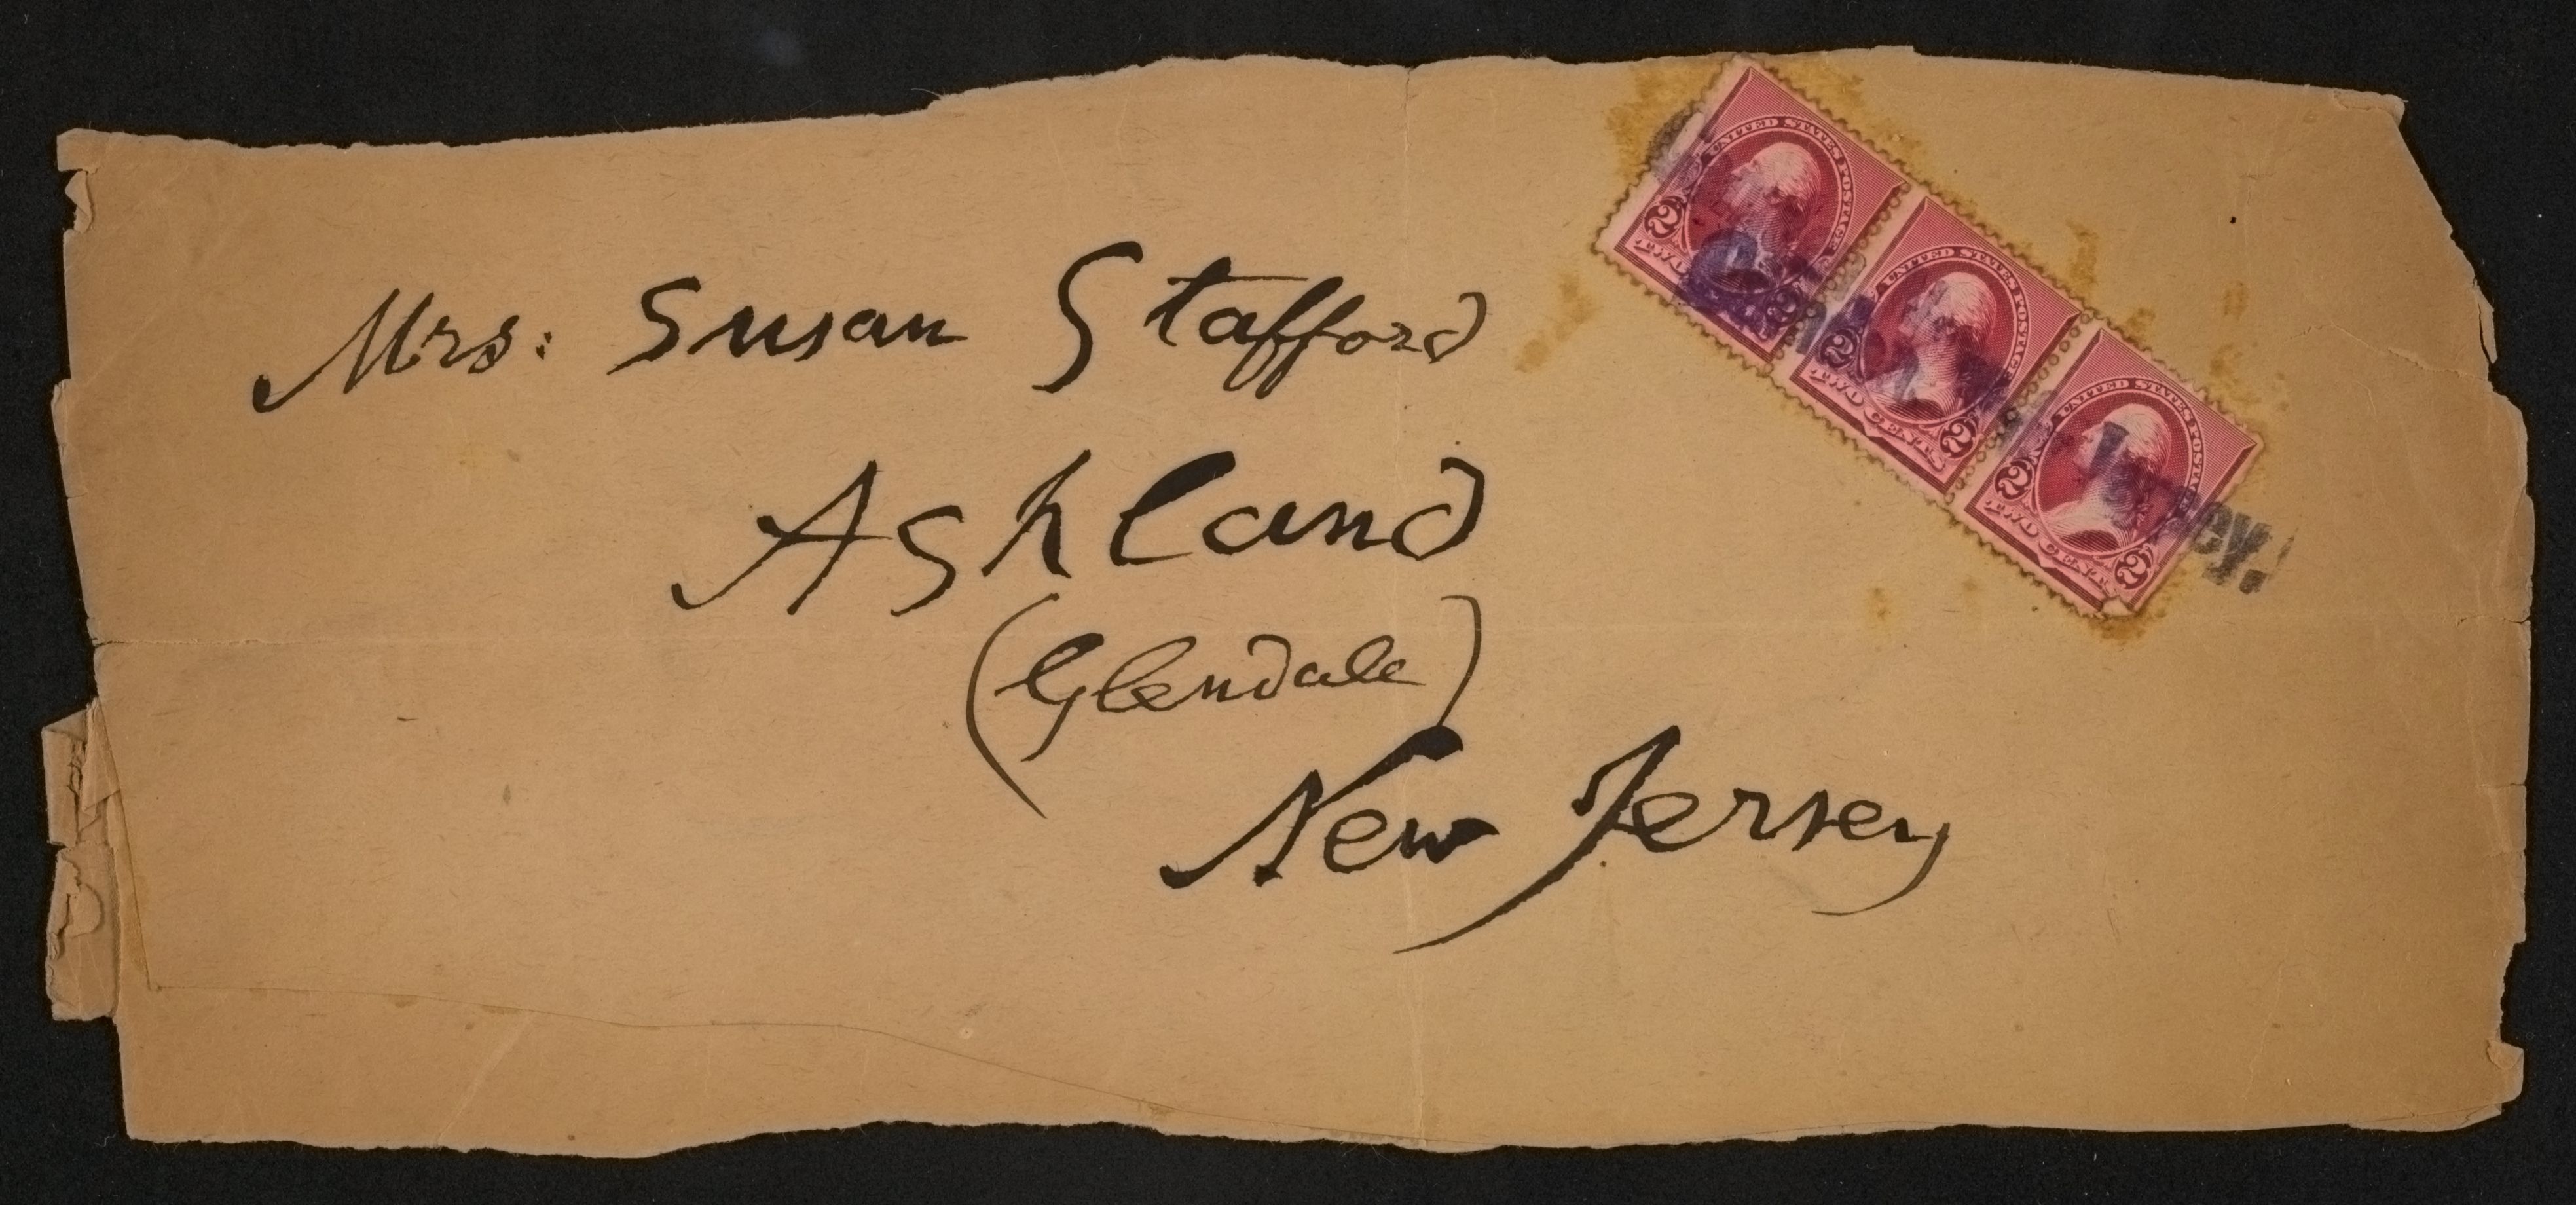 Mrs: Susan Stafford
Ashland
(Glendale)
New Jersey
UNITED STATES POSTAGE
2 2
TWO CENTS
UNITED STATES POSTAGE
2 2
TWO CENTS
UNITED STATES POSTAGE
2 2
TWO CENTS
Camden, Jersey.